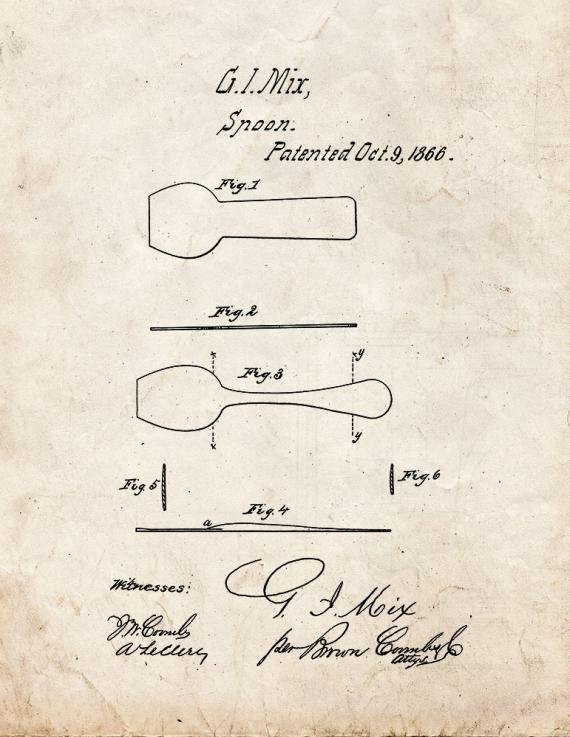 G. I. Mix,
Spoon.
Patented Oct. 9, 1866.
Fig. 1
Fig. 2
x y
Fig. 3
x y
Fig. 5
Fig. 6
a Fig. 4
Witnesses:
G I. Mix
per Brown Coombs & Co
Attys